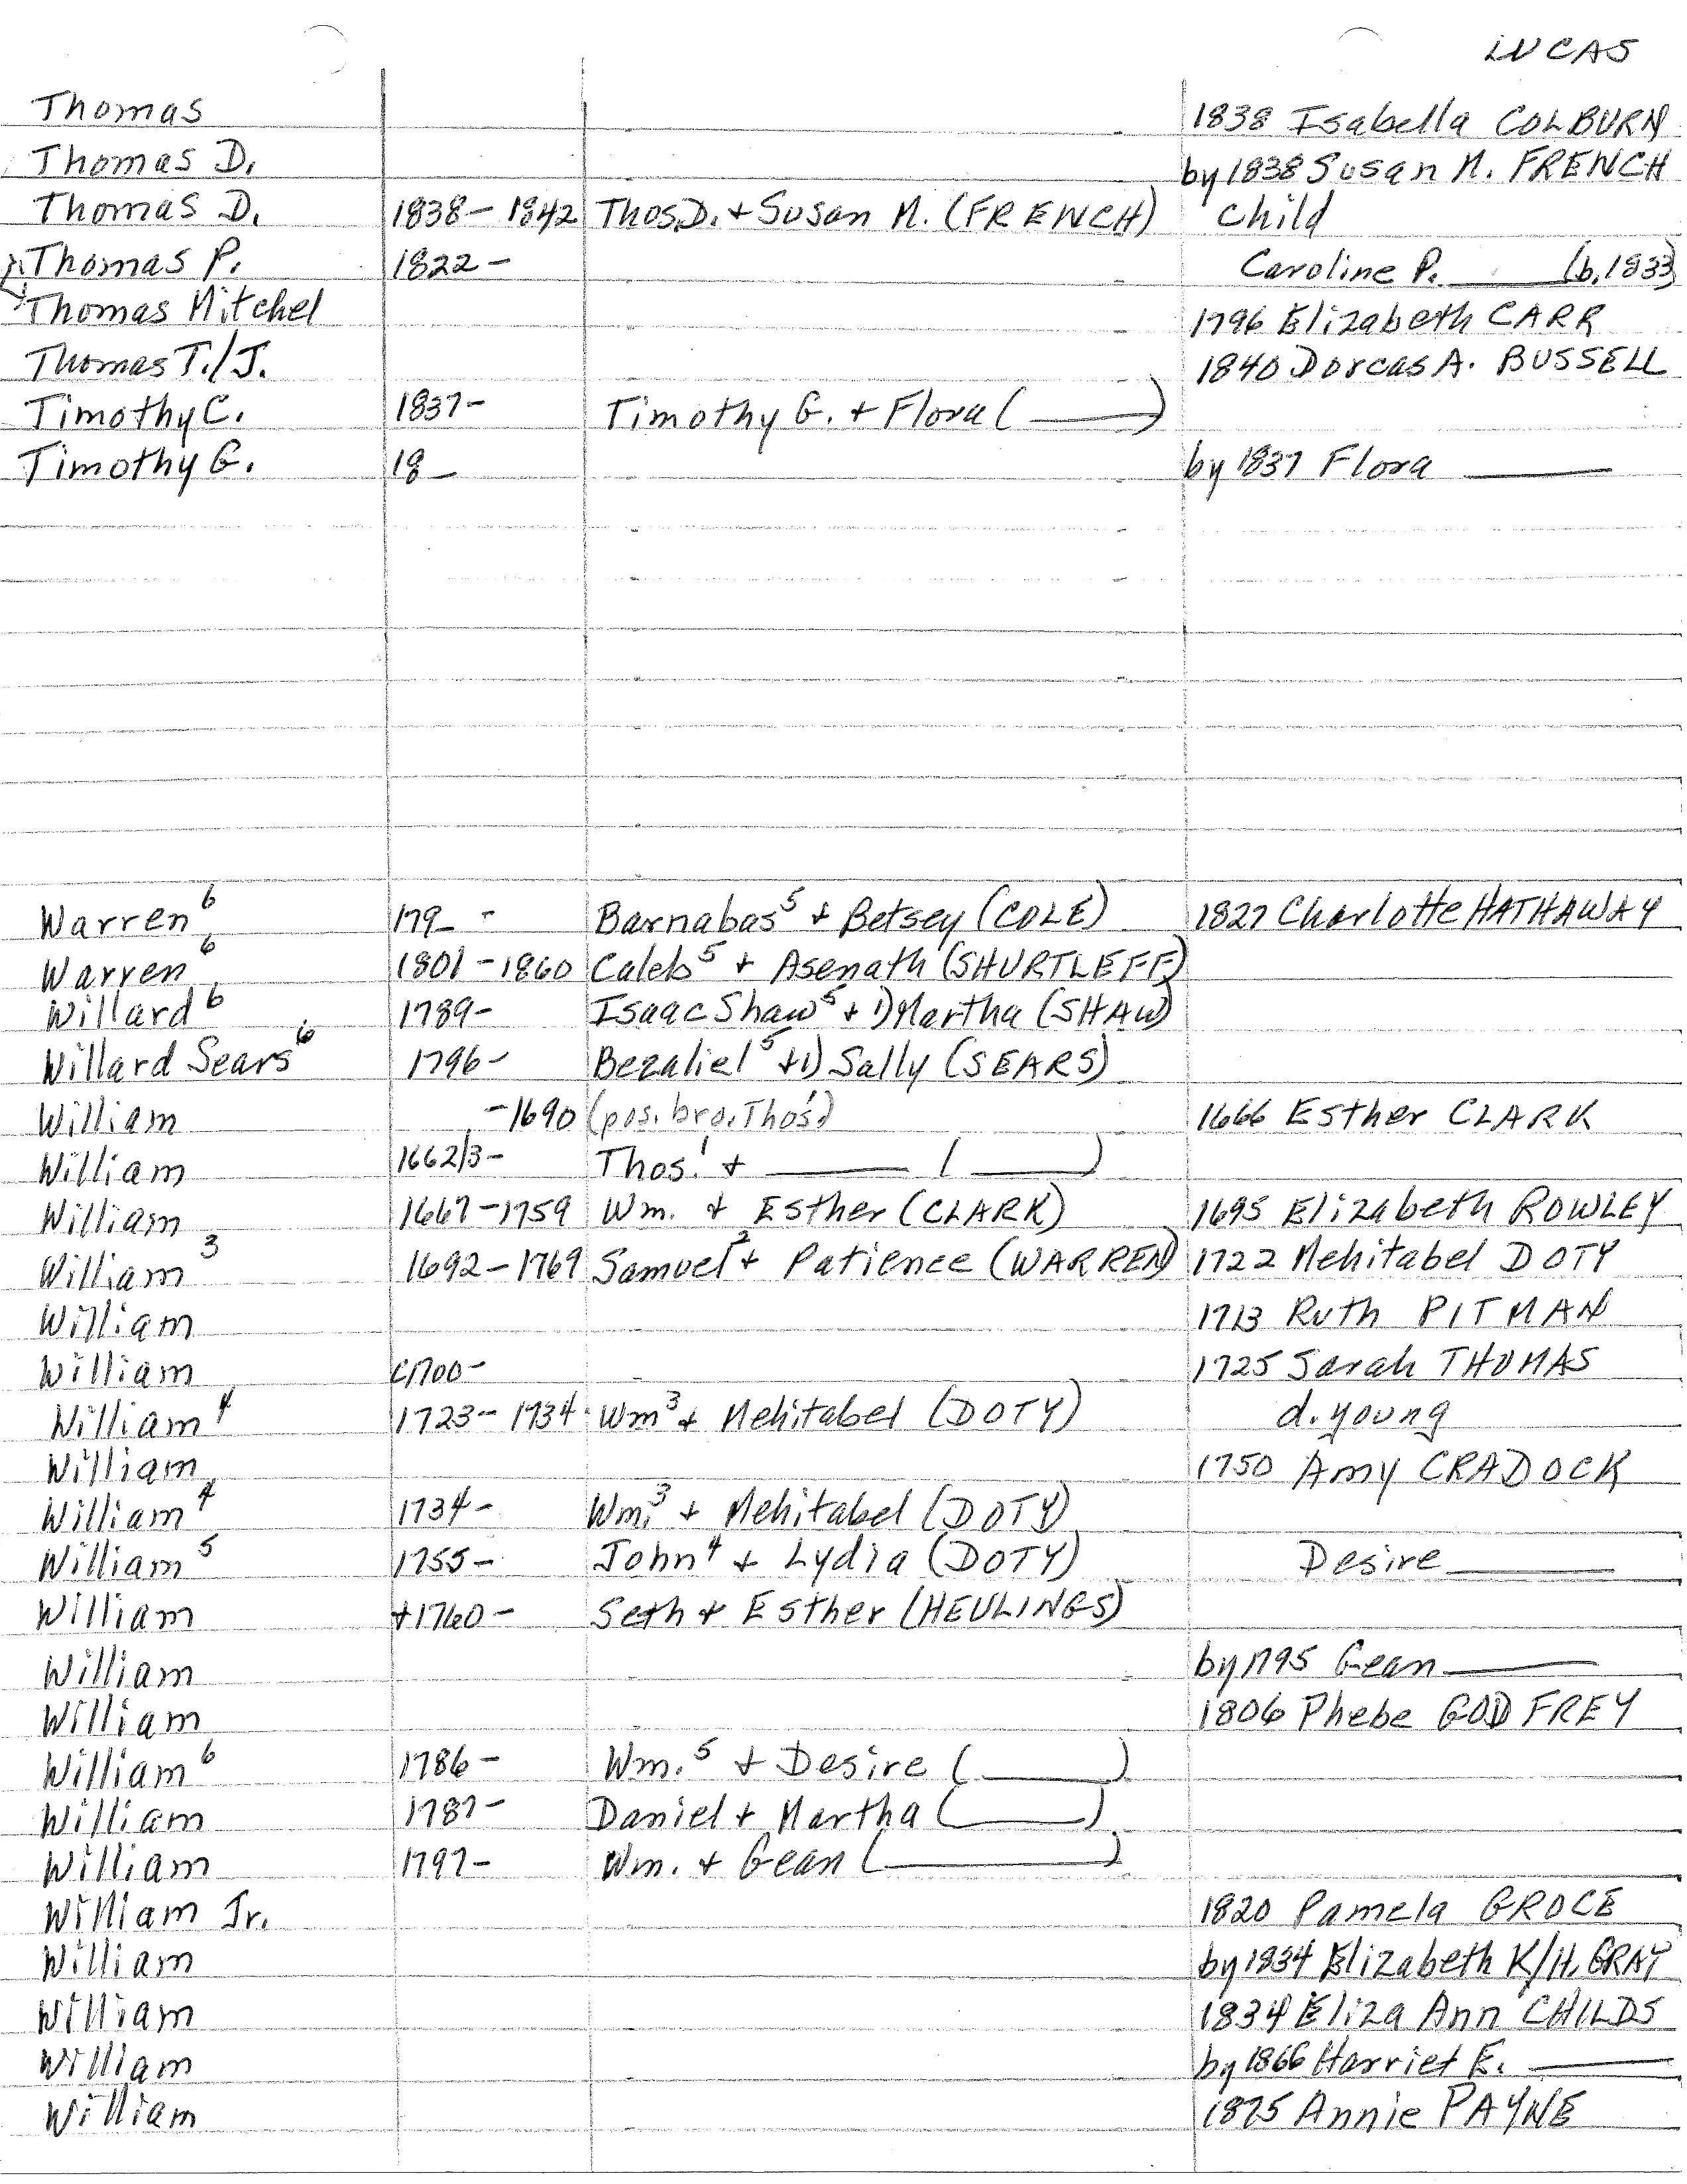 LUCAS
Thomas 1838 Isabella COLBURN
Thomas D. by 1838 Susan M. FRENCH
Thomas D. 1838-1842 Thos.D. + Susan M. (FRENCH) child
Thomas P. 1822- Caroline P. ____ (b.1833)
Thomas Mitchel 1796 Elizabeth CARR
Thomas T./J. 1840 Dorcas A. BUSSELL
Timothy C. 1837- Timothy G. + Flora (____)
Timothy G. 18_ by 1837 Flora ____
Warren⁶ 179_ - Barnabas⁵ + Betsey (COLE) 1827 Charlotte HATHAWAY
Warren⁶ 1801-1860 Caleb⁵ + Asenath (SHURTLEFF)
Willard⁶ 1789- Isaac Shaw⁵ + 1) Martha (SHAW)
Willard Sears⁶ 1796- Bezaliel⁵ + 1) Sally (SEARS)
William -1690 (pos. bro. Thos.¹) 1666 Esther CLARK
William 1662/3- Thos.¹ + ____ (____)
William 1667-1759 Wm. + Esther (CLARK) 1695 Elizabeth ROWLEY
William³ 1692-1769 Samuel² + Patience (WARREN) 1722 Mehitabel DOTY
William 1713 Ruth PITMAN
William c1700- 1725 Sarah THOMAS
William⁴ 1723-1734 Wm³ + Mehitabel (DOTY) d. young
William 1750 Amy CRADOCK
William⁴ 1734- Wm.³ + Mehitabel (DOTY)
William⁵ 1755- John⁴ + Lydia (DOTY) Desire ____
William +1760- Seth + Esther (HEULINGS)
William by 1795 Gean ____
William 1806 Phebe GODFREY
William⁶ 1786- Wm.⁵ + Desire (____)
William 1787- Daniel + Martha (____)
William 1797- Wm. + Gean (____)
William Jr. 1820 Pamela GROCE
William by 1834 Elizabeth K/H. GRAY
William 1834 Eliza Ann CHILDS
William by 1866 Harriet E. ____
William 1875 Annie PAYNE